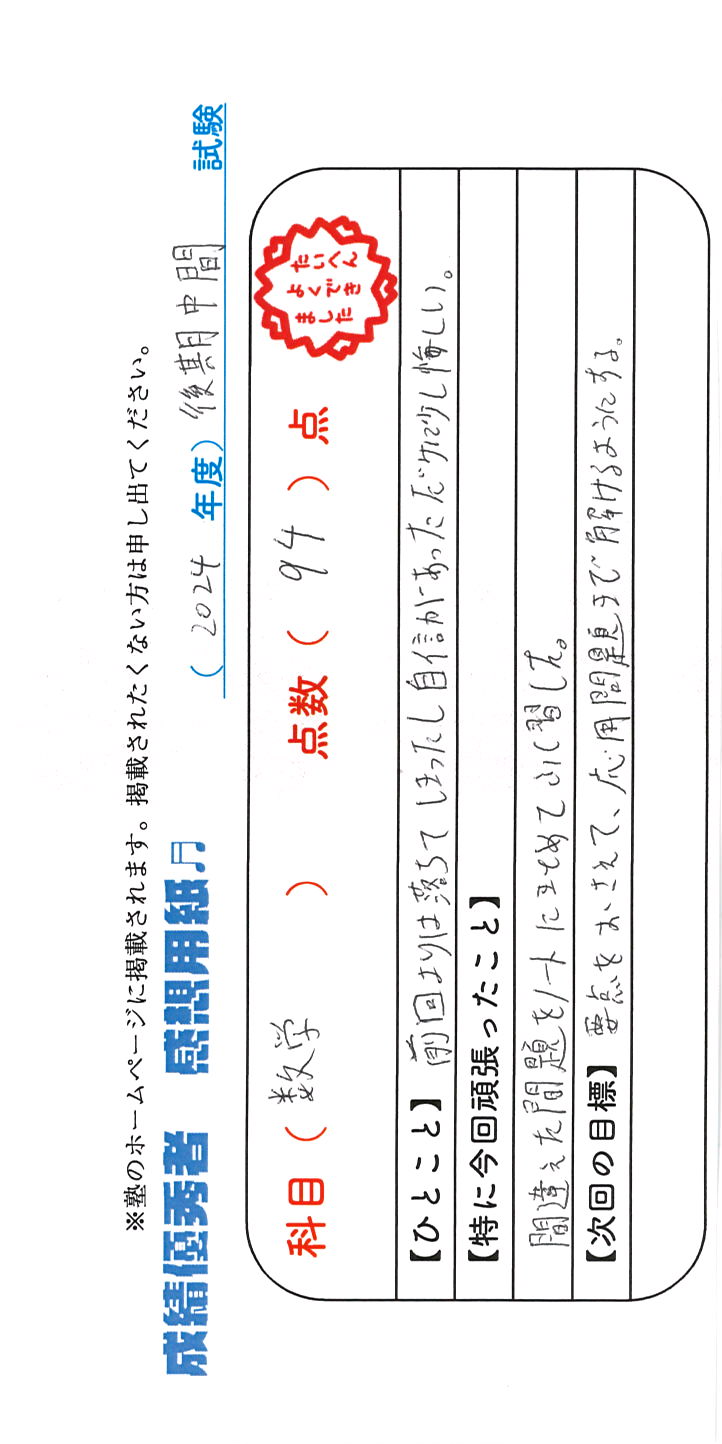 ※塾のホームページに掲載されます。掲載されたくない方は申し出てください。
成績優秀者 感想用紙♬
(2024 年度)後期中間 試験
科目(数学) 点数(94)点
たいへん
よくでき
ました
【ひとこと】前回よりは落ちてしまったし自信があっただけに少し悔しい。
【特に今回頑張ったこと】
間違えた問題をノートにまとめて復習した。
【次回の目標】要点をおさえて、応用問題まで解けるようにする。